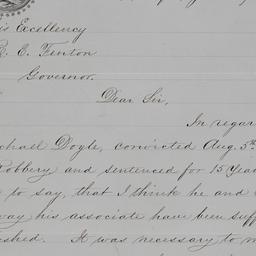 is Excellency
R. E. Fenton
Governor.
Dear Sir,
In regar
chael Doyle, convicted Aug. 5th
Robbery and sentenced for 15 Year
to say, that I think he and
way his associate have been suff
shed. It was necessary to m